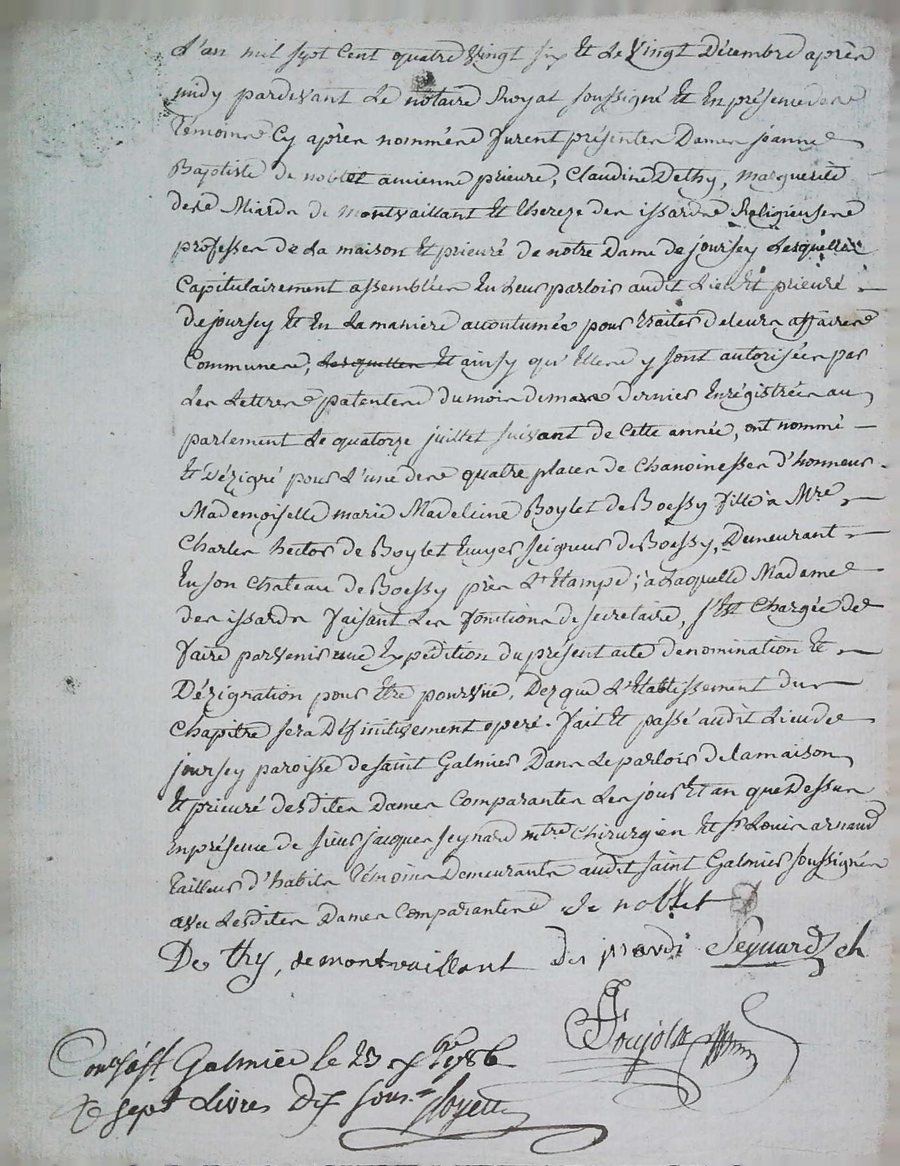 L'an mil sept Cent quatre Vingt six Et Le Vingt Décembre après
midy pardevant Le notaire Royal soussigné Et En présence des
témoins Cy après nommés furent présentes Dames jeanne
Baptiste de noblet ancienne prieure, Claudine Dethy, marguerite
des Miards de montvaillant Et thereze des issards Religieuses
professes de La maison Et prieuré de notre Dame de joursey Lesquelles
Capitulairement assemblées En Leur parloir audit Lieu Et prieuré
de joursey Et En La maniere accoutumée pour traiter de leurs affaires
Communes, Lesquelles Et ainsy qu'Elles y sont autorisées par
Les Lettres patentes du mois de mars dernier Enrégistrées au
parlement Le quatorze juillet suivant de Cette année, ont nommé
Et Dézigné pour L'une des quatre places de Chanoinesses d'honneur
Mademoiselle marie Madeleine Boylet de Boessy fille à Mre
Charles hector de Boylet Ecuyer seigneur de Boessy, Demeurant
En son Chateau de Boessy près L'Etampe; à Laquelle Madame
des issards faisant Les fonctions de secretaire, s'Est Chargée de
faire parvenir une Expédition du présent acte de nomination Et
Dézignation pour Etre pourvue, Dez que L'Etablissement du
Chapitre sera Définitivement operé. fait Et passé audit Lieu de
joursey paroisse de saint Galmier Dans Le parloir de la maison
Et prieuré desdites Dames Comparantes Les jour Et an que Dessus
En présence de sieur jacques seynard mtre Chirurgien Et sr Louis arnaud
tailleur d'habits témoins Demeurants audit saint Galmier soussignés
avec Lesdites Dames Comparantes de noblet
De thy, de montvaillant Seynard ch
Galmier le 23 xbre 1786
sept Livres Dix sous